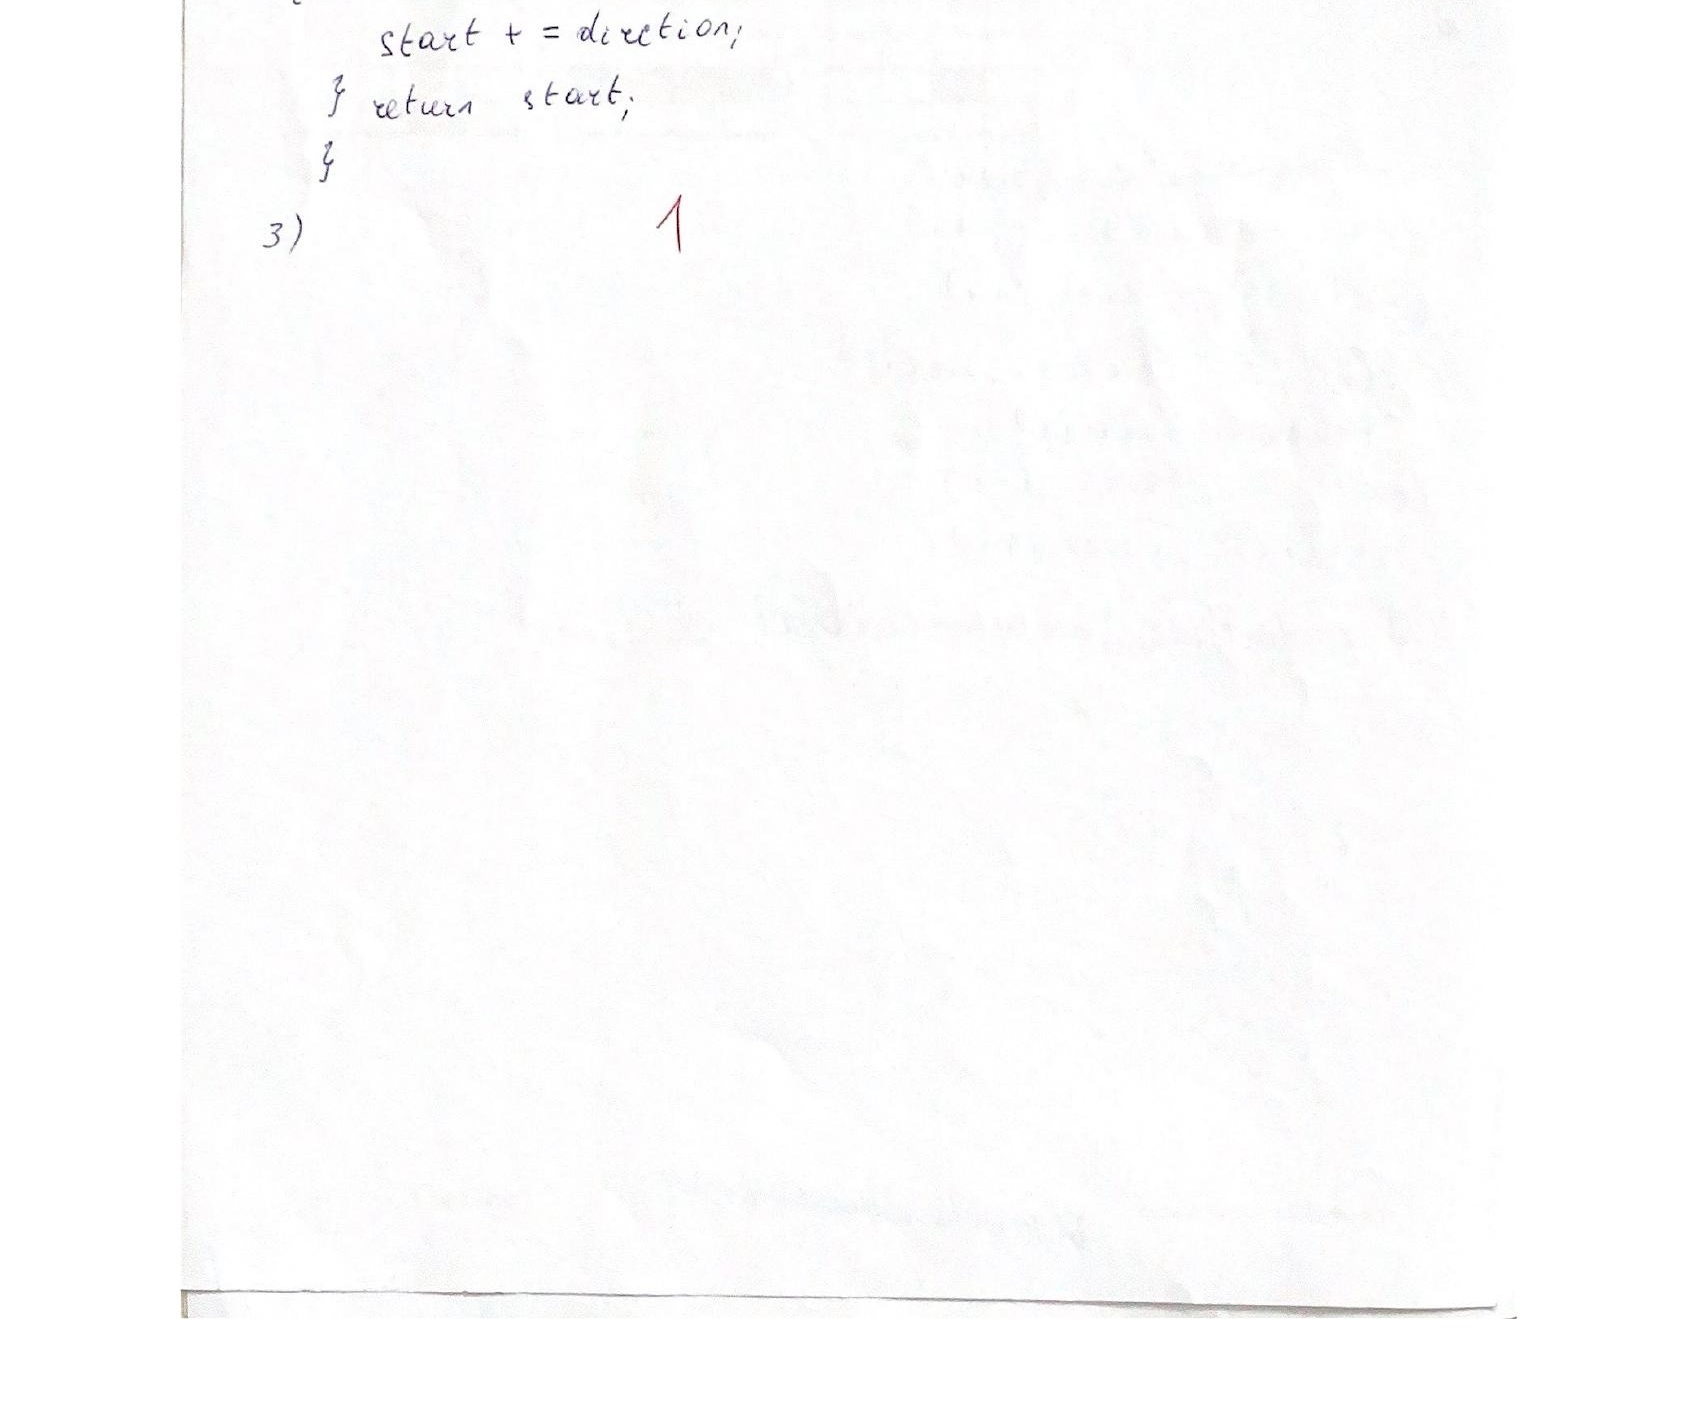 start + = direction;
} return start;
}
3) 1